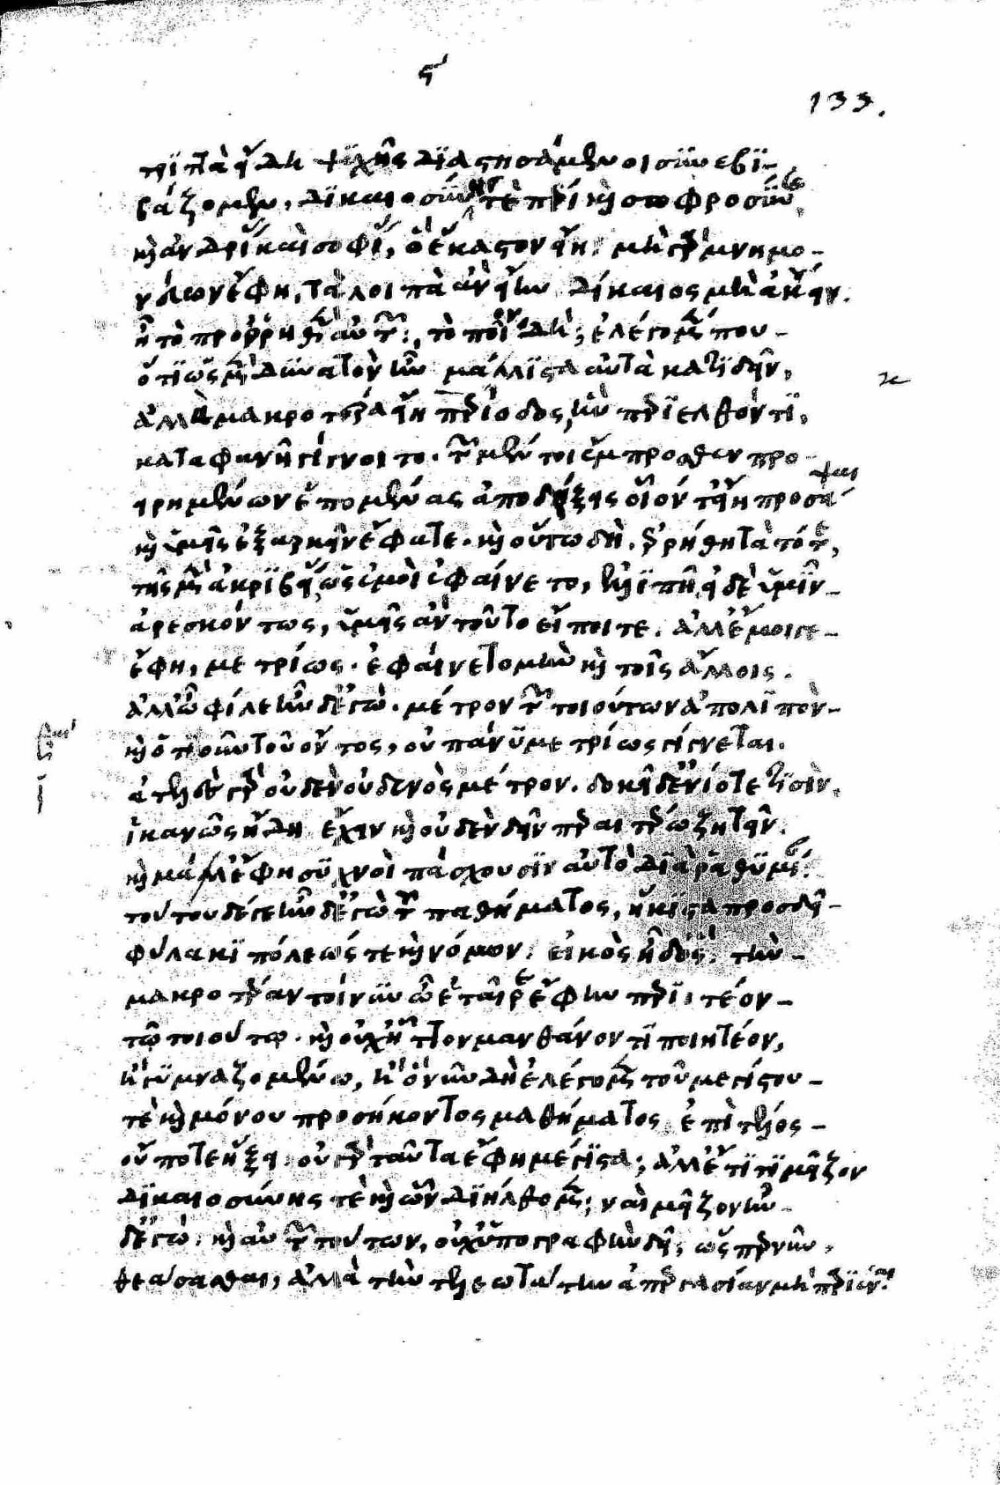 ς΄
133.
τριττὰ εἴδη ψυχῆς διαστησάμενοι συνεβι-
βάζομεν, δικαιοσύνης τὲ πέρι καὶ σωφροσύνης
καὶ ἀνδρείας καὶ σοφίας, ὃ ἕκαστον εἴη. μὴ γὰρ μνημο-
νεύων ἔφη, τὰ λοιπὰ ἂν εἴην δίκαιος μὴ ἀκούειν.
ἢ τὸ προρρηθὲν αὐτῶν; τὸ ποῖον δή; ἐλέγομεν που-
ὅτι ὡς μὲν δυνατὸν ἦν μάλλιστα αὐτὰ κατιδεῖν,
ἄλλη μακροτέρα εἴη περίοδος, ἣν περιελθόντι,
καταφανῆ γίγνοιτο. τῶν μέντοι ἔμπροσθεν προ-
ειρημένων ἑπομένας ἀποδείξεις οἷόν τ' εἴη προσάψαι
καὶ ὑμεῖς ἐξαρκεῖν ἔφατε. καὶ οὕτω δὴ. ἐρρήθη τὰ τότε,
τῆς μὲν ἀκριβείας, ὡς ἐμοὶ ἐφαίνετο, ἐλλιπῆ, εἰ δὲ ὑμῖν-
ἀρεσκόντως, ὑμεῖς ἂν τοῦτο εἴποιτε. ἀλλ' ἔμοιγε-
ἔφη, μετρίως. ἐφαίνετο μὴν καὶ τοῖς ἄλλοις.
ἀλλ' ὦ φίλε ἦν δ' ἐγώ. μέτρον τῶν τοιούτων ἀπολῖπον-
καὶ ὁτιοῦν τοῦ ὄντος, οὐ πάνυ μετρίως γίγνεται.
ἀτελὲς γὰρ οὐδὲν οὐδενὸς μέτρον. δοκεῖ δ' ἐνίοτε τισὶν.
ἱκανῶς ἤδη ἔχειν καὶ οὐδὲν δεῖν περαιτέρω ζητεῖν.
καὶ μάλ' ἔφη συχνοὶ πάσχουσιν αὐτὸ διὰ ῥᾳθυμίαν.
τούτου δέ γε ἦν δ' ἐγὼ τοῦ παθήματος, ἥκιστα προσδεῖ-
φύλακι πόλεώς τε καὶ νόμων. εἰκὸς ἦ δ' ὅς. τὴν-
μακροτέραν τοίνυν ὦ ἑταῖρε ἔφην περιιτέον-
τῷ τοιούτῳ. καὶ οὐχ ἧττον μανθάνοντι πονητέον,
ἢ γυμναζομένῳ, ἢ ὃ νῦν δὴ ἐλέγομεν τοῦ μεγίστου-
τὲ καὶ μόνου προσήκοντος μαθήματος ἐπὶ τέλος-
οὔποτε ἥξει. οὐ γὰρ ταῦτα ἔφη μέγιστα; ἀλλ' ἔτι τι μεῖζον
δικαιοσύνης τὲ καὶ ὧν διήλθομεν; καὶ μεῖζον ἦν-
δ' ἐγώ. καὶ αὐτῶν τούτων, οὐχ ὑπογραφὴν δεῖ, ὥσπερ νῦν,
θεάσασθαι, ἀλλὰ τὴν τελεωτάτην ἀπεργασίαν μὴ παριέναι